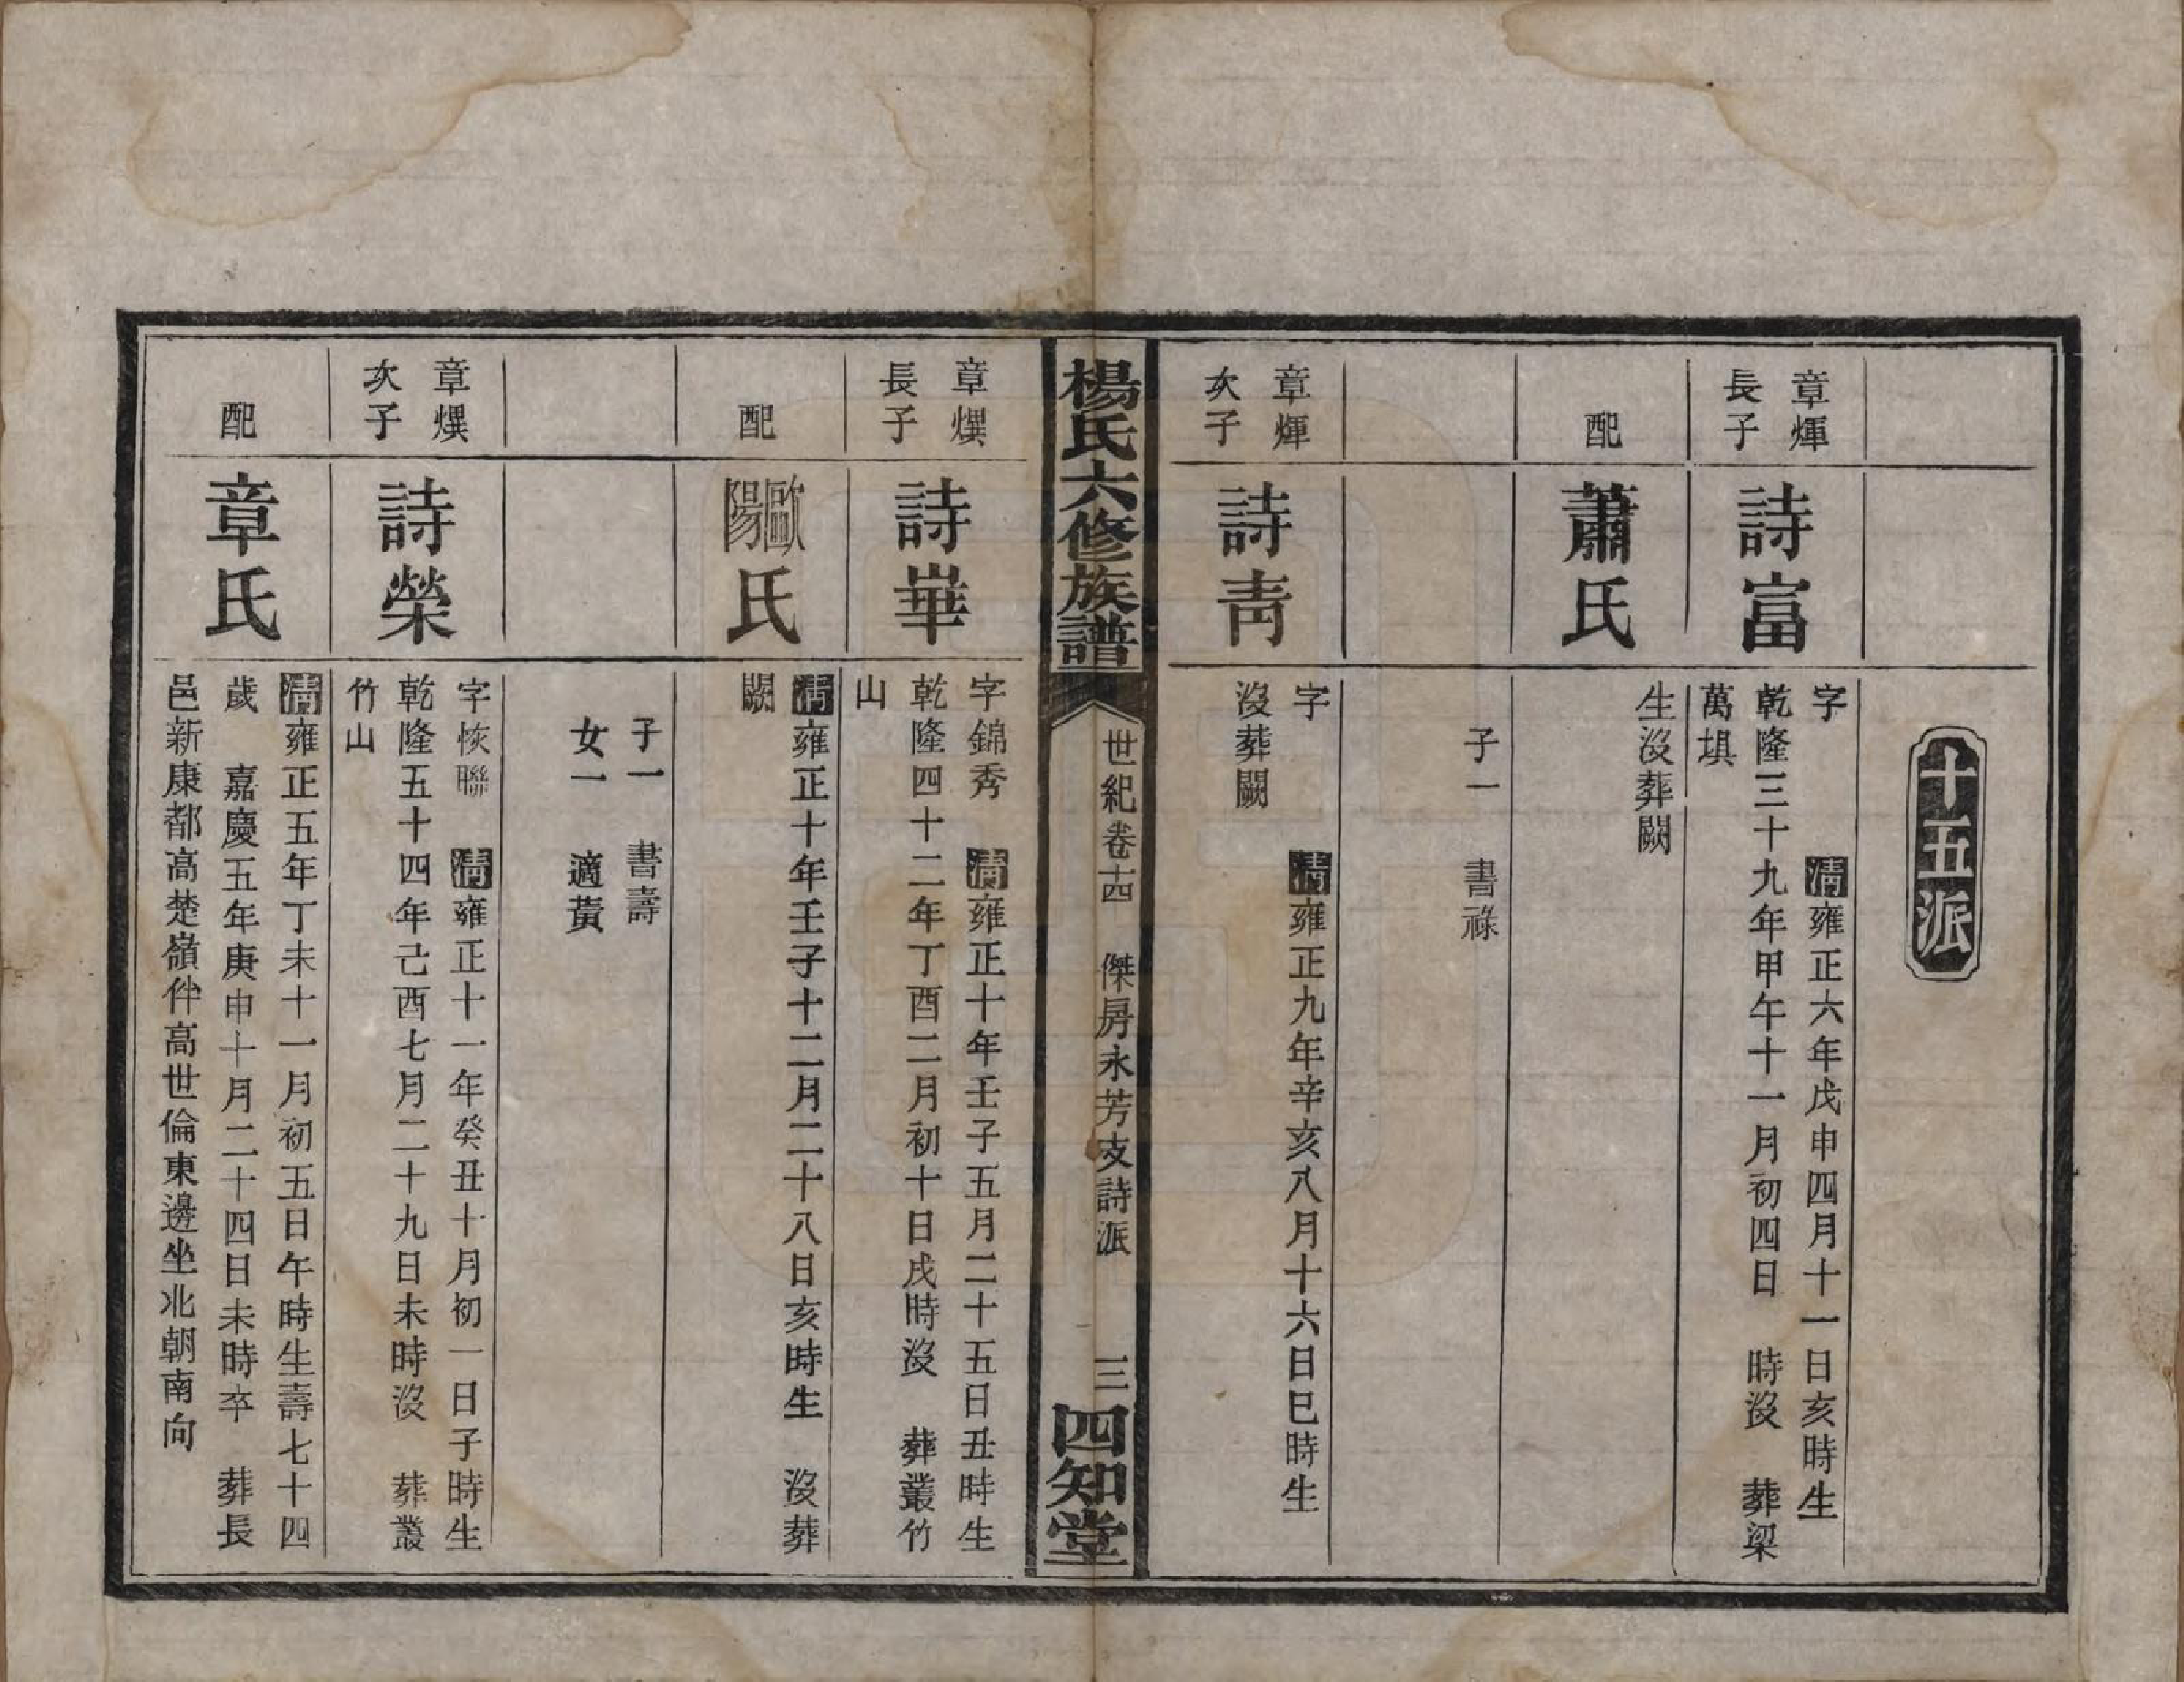 十五派
章煇
長子
詩富
字　清雍正六年戊申四月十一日亥時生
乾隆三十九年甲午十一月初四日　時沒　葬梁
萬塤
配
蕭氏
生沒葬闕
子一　書祿
章煇
次子
詩靑
字　清雍正九年辛亥八月十六日巳時生
沒葬闕
楊氏六修族譜
世紀卷十四　傑房永芳支詩派
三
四知堂
章熯
長子
詩華
字錦秀　清雍正十年壬子五月二十五日丑時生
乾隆四十二年丁酉二月初十日戌時沒　葬叢竹
山
配
歐陽氏
清雍正十年壬子十二月二十八日亥時生　沒葬
闕
子一　書壽
女一　適黃
章熯
次子
詩榮
字恢聯　清雍正十一年癸丑十月初一日子時生
乾隆五十四年己酉七月二十九日未時沒　葬叢
竹山
配
章氏
清雍正五年丁未十一月初五日午時生壽七十四
歲　嘉慶五年庚申十月二十四日未時卒　葬長
邑新康都高楚嶺伴高世倫東邊坐北朝南向